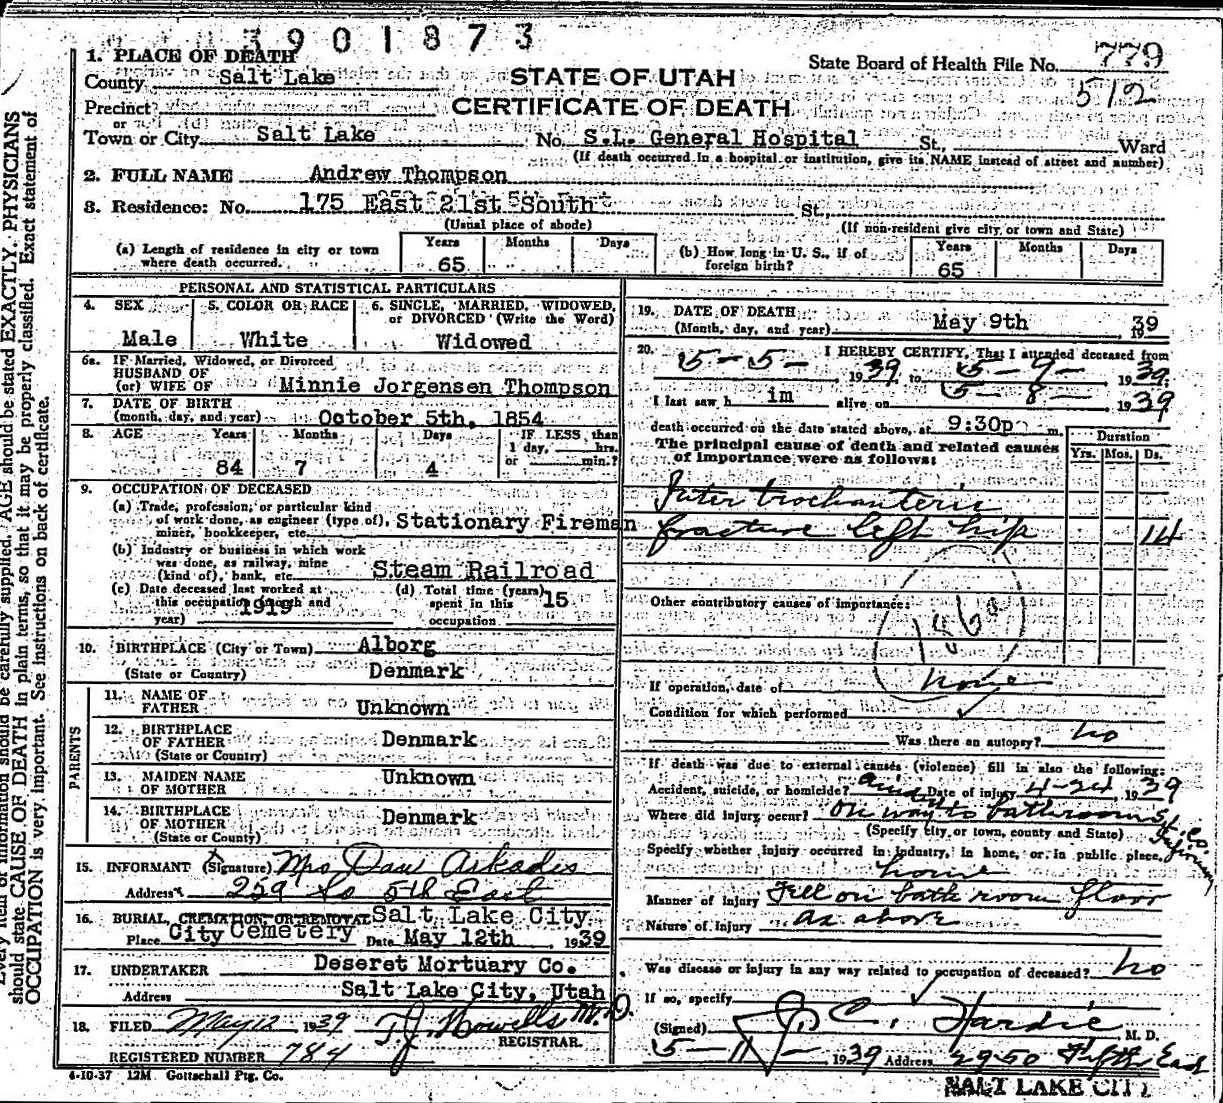 3901873
1. PLACE OF DEATH
State Board of Health File No. 779
County Salt Lake
STATE OF UTAH
512
Precinct
CERTIFICATE OF DEATH
or
Town or City Salt Lake No. S.L. General Hospital St., Ward
(If death occurred in a hospital or institution, give its NAME instead of street and number)
2. FULL NAME Andrew Thompson
3. Residence: No. 175 East 21st South St.,
(Usual place of abode) (If non-resident give city, or town and State)
(a) Length of residence in city or town where death occurred. Years 65 Months Days
(b) How long in U. S., if of foreign birth? Years 65 Months Days
PERSONAL AND STATISTICAL PARTICULARS
4. SEX Male
5. COLOR OR RACE White
6. SINGLE, MARRIED, WIDOWED, or DIVORCED (Write the Word) Widowed
6a. IF Married, Widowed, or Divorced
HUSBAND OF
(or) WIFE OF Minnie Jorgensen Thompson
7. DATE OF BIRTH
(month, day, and year) October 5th, 1854
8. AGE Years 84 Months 7 Days 4 IF LESS than 1 day, hrs. or min.?
9. OCCUPATION OF DECEASED
(a) Trade, profession, or particular kind
of work done, as engineer (type of),
miner, bookkeeper, etc. Stationary Fireman
(b) Industry or business in which work
was done, as railway, mine
(kind of), bank, etc. Steam Railroad
(c) Date deceased last worked at
this occupation (month and
year) 1919
(d) Total time (years)
spent in this
occupation 15
10. BIRTHPLACE (City or Town) Alborg
(State or Country) Denmark
PARENTS
11. NAME OF
FATHER Unknown
12. BIRTHPLACE
OF FATHER Denmark
(State or Country)
13. MAIDEN NAME
OF MOTHER Unknown
14. BIRTHPLACE
OF MOTHER Denmark
(State or County)
15. INFORMANT (Signature) Mrs Dan Arkades
Address 259 So 5th East
16. BURIAL, CREMATION OR REMOVAL Salt Lake City,
Place City Cemetery Date May 12th 1939
17. UNDERTAKER Deseret Mortuary Co.
Address Salt Lake City, Utah
18. FILED May 12 1939 T.J. Howells M.D.
REGISTRAR.
REGISTERED NUMBER 784
4-10-37 12M Gottschall Ptg. Co.
19. DATE OF DEATH
(Month, day, and year) May 9th 1939
20. I HEREBY CERTIFY, That I attended deceased from
5-5- 1939, to 5-9- 1939.
I last saw h im alive on 5-8- 1939
death occurred on the date stated above, at 9:30p m.
The principal cause of death and related causes
of importance were as follows:
Duration
Yrs. Mos. Ds.
Inter trochanteric
fracture left hip 14
Other contributory causes of importance:
186a
If operation, date of none
Condition for which performed
Was there an autopsy? no
If death was due to external causes (violence) fill in also the following:
Accident, suicide, or homicide? Date of injury 4-24 1939
Where did injury occur? On way to bathroom S.L. Co. Infirmary
(Specify city, or town, county and State)
Specify whether injury occurred in industry, in home, or in public place.
home
Manner of injury Fell on bath room floor
Nature of injury as above
Was disease or injury in any way related to occupation of deceased? no
If so, specify
(Signed) J. C. Hardie M. D.
5-11- 1939 Address 2950 Fifth East
SALT LAKE CITY
Every item of information should be carefully supplied. AGE should be stated EXACTLY. PHYSICIANS
should state CAUSE OF DEATH in plain terms, so that it may be properly classified. Exact statement of
OCCUPATION is very important. See instructions on back of certificate.